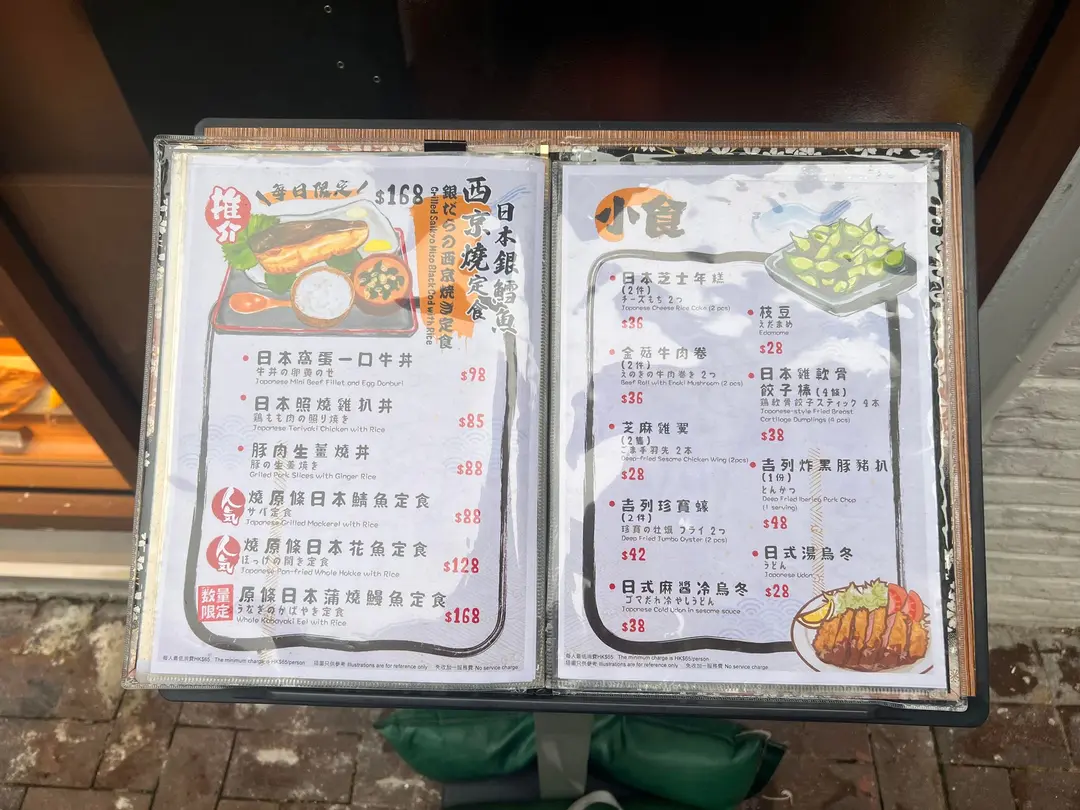 推介
每日限定
$168
日本銀鱈魚
西京燒定食
銀だらの西京焼き定食
Grilled Saikyo Miso Black Cod with Rice
日本窩蛋一口牛丼
牛丼の卵黄のせ
Japanese Mini Beef Fillet and Egg Donburi
$98
日本照燒雞扒丼
鶏もも肉の照り焼き
Japanese Teriyaki Chicken with Rice
$85
豚肉生薑燒丼
豚の生姜焼き
Grilled Pork Slices with Ginger Rice
$88
人気
燒原條日本鯖魚定食
サバ定食
Japanese Grilled Mackerel with Rice
$88
人気
燒原條日本花魚定食
ほっけの開き定食
Japanese Pan-fried Whole Hokke with Rice
$128
数量限定
原條日本蒲燒鰻魚定食
うなぎのかばやき定食
Whole Kabayaki Eel with Rice
$168
每人最低消費HK$65 The minimum charge is HK$65/person.
圖片只供參考 Illustrations are for reference only 免收加一服務費 No service charge.
小食
日本芝士年糕
(2件)
チーズもち 2つ
Japanese Cheese Rice Cake (2 pcs)
$36
金菇牛肉卷
(2件)
えのきの牛肉巻き 2つ
Beef Roll with Enoki Mushroom (2 pcs)
$36
芝麻雞翼
(2隻)
ごま手羽先 2本
Deep-fried Sesame Chicken Wing (2pcs)
$28
吉列珍寶蠔
(2件)
珍寶の牡蠣 フライ 2つ
Deep Fried Jumbo Oyster (2 pcs)
$42
日式麻醬冷烏冬
ゴマだれ冷やしうどん
Japanese Cold Udon in sesame sauce
$38
枝豆
えだまめ
Edamame
$28
日本雞軟骨
餃子棒(4條)
鶏軟骨餃子スティック 4本
Japanese-style Fried Breast
Cartilage Dumplings (4 pcs)
$38
吉列炸黑豚豬扒
(1份)
とんかつ
Deep Fried Iberico Pork Chop
(1 serving)
$48
日式湯烏冬
うどん
Japanese Udon
$28
每人最低消費HK$65 The minimum charge is HK$65/person.
圖片只供參考 Illustrations are for reference only 免收加一服務費 No service charge.